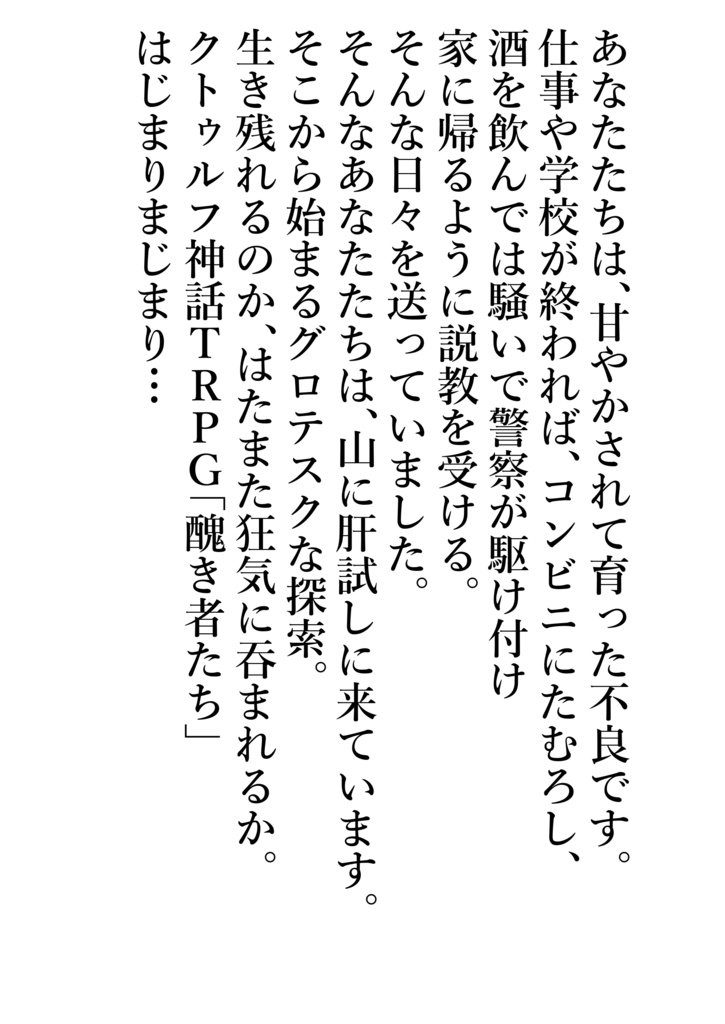 あなたたちは、甘やかされて育った不良です。
仕事や学校が終われば、コンビニにたむろし、
酒を飲んでは騒いで警察が駆け付け
家に帰るように説教を受ける。
そんな日々を送っていました。
そんなあなたたちは、山に肝試しに来ています。
そこから始まるグロテスクな探索。
生き残れるのか、はたまた狂気に呑まれるか。
クトゥルフ神話TRPG「醜き者たち」
はじまりまじまり…